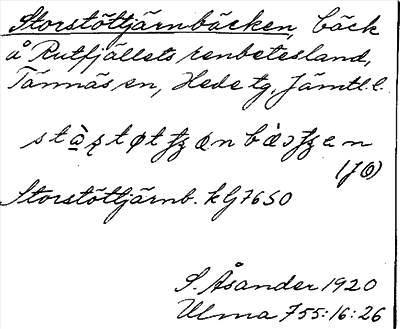 Storstöttjärnbäcken, bäck
å Rutfjällets renbetesland,
Tännäs sn, Hede tg, Jämtl. l.
(JÖ)
Storstöttjärnb. k G7650
S. Åsander 1920
Ulma 755:16:26